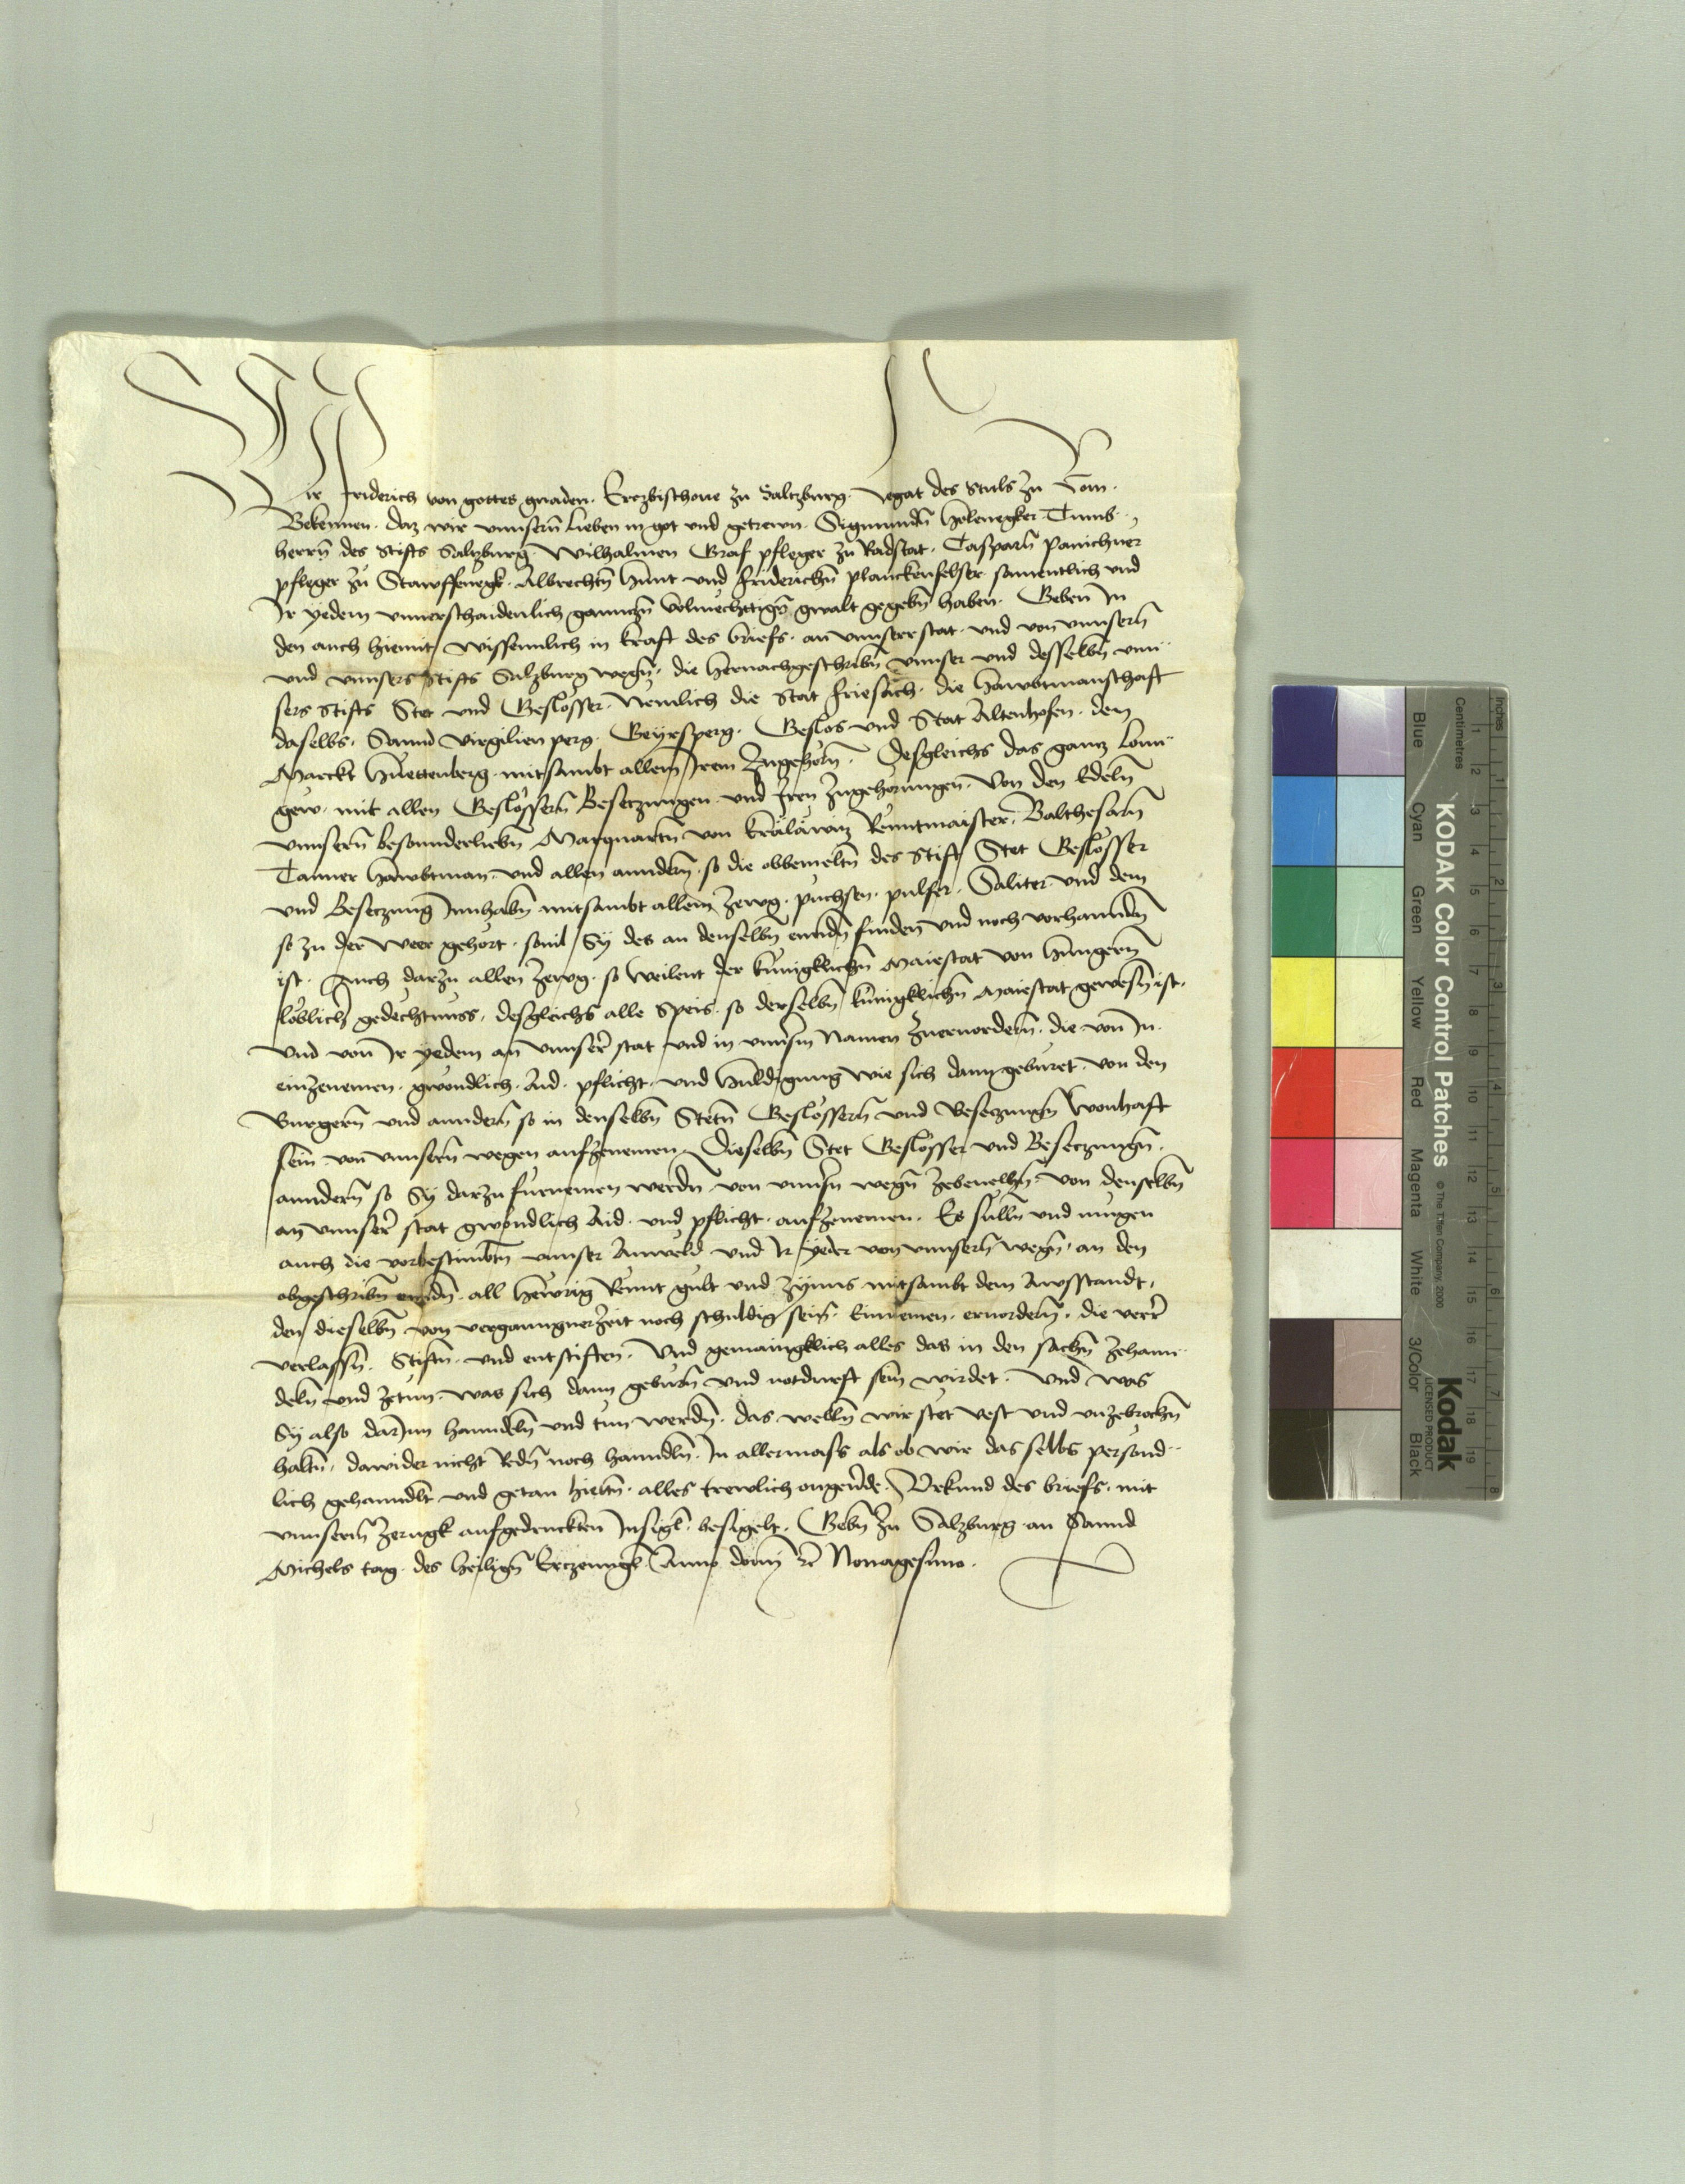 Wir Friderich von gottes gnaden. Ertzbischoue zu Saltzburg. Legat des Stuls zu Rom.
Bekennen. daz wir vnnsern lieben in got vnd getrewn. Sigmundn Holnegker Tumb-
herrn des Stifts Saltzburg. Wilhalmen Graf pfleger zu Radstat. Casparn Panichner
pfleger zu Stawffnegk. Albrechtn Hunt vnd Friderichn planckenfelser samentlich vnd
Ir yedem vnuerschaidenlich ganntzn volmechttign gwalt gegebn haben. Geben In
den auch hiemit wissenntlich in kraft des briefs. an vnnserr stat. vnd von vnnsern
vnd vnnsers Stifts Saltzburg wegn. die hernachgeschribn vnnser vnd desselbn vnn-
sers Stifts Stet vnd Geslösser. Nemlich die Stat Friesach. die Hawbtmanschaft
daselbs. Sannd Virgilien perg. Geyrsperg. Geslos vnd Stat Altenhofen. den
Marckt Huettenberg. mitsambt allem Irem Zugehorn. Desgleichs das gantz Lonn-
gew. mit allen Geslössern Besetzungen. vnd Iren zugehorungen. Von den Edeln
vnnsern besonnderliebn Marquartn von Kraläwitz Renntmaister. Balthesarn
Tanner Hawbtman. vnd allen anndern. so die obbemeltn des Stift Stet Geslösser
vnd Besetzung Innhabn mitsambt allem zewg. puchsen. pulfer. Saliter. vnd dem
so zu der weer gehort. souil Sy des an denselbn enndn finden vnd noch vorhanndn
ist. Auch darzu allen zewg. so weilent der kunigklichn Maiestat von Hungern
löblicher gedechtnuss. desgleichs alle Speis. so derselbn kunigklichn Maiestat gewesn ist.
Vnd von Ir yedem an vnnserr stat vnd in vnnserm Namen zueruordern. die von In.
einzenemen. gwondlich. Aid. pflicht. vnd Huldigung wie sich dann geburet. von den
Burgern vnd anndern so in denselbn Stetn Geslössern vnd Besetzungn wonhaft
sein. von vnnsern wegen aufzenemen. Dieselbn Stet Geslösser vnd Besetzungn.
anndern so Sy darzu furnemen werdn. von vnnsern wegn zebeuelhn. von denselbn
an vnnserr stat gwondlich Aid. vnd pflicht. aufzenemen. Es sulln vnd mugen
auch die vorbestimbtn vnnser Anwëld vnd Ir yeder von vnnsern wegn. an den
obgeschribn enndn. all Hewrig Rennt gult vnd zynns mitsambt dem Awsstandt.
den dieselbn von vergangner zeit noch schuldig sein. Einnemen. eruordern. die verrer
verlassn. Stiftn. vnd entstiften. Vnd gemaingklich alles das in den sachn zehann-
deln vnd zetun. was sich dann geburn vnd notdurft sein wirdet. Vnd was
Sy also darInn hanndeln vnd tun werdn. das welln wir stet vest vnd vnzebrochn
haltn. dawider nicht Redn noch hanndln. In allermass als ob wir das selbs persond-
lich gehanndlt vnd getan hietn. alles trewlich ongeuerde. Vrkund des briefs. mit
vnnserm zerugk aufgedruckten Insigl. besigelt. Gebn zu Saltzburg. an Sannd
Michels tag. des Heilign Ertzenngl. Anno domini etc Nonagesimo.
KODAK Color Control Patches
© The Tiffen Company, 2000
Kodak
LICENSED PRODUCT
Inches
Centimetres
Blue Cyan Green Yellow Red Magenta White 3/Color Black
1 2 3 4 5 6 7 8 9 10 11 12 13 14 15 16 17 18 19
1 2 3 4 5 6 7 8